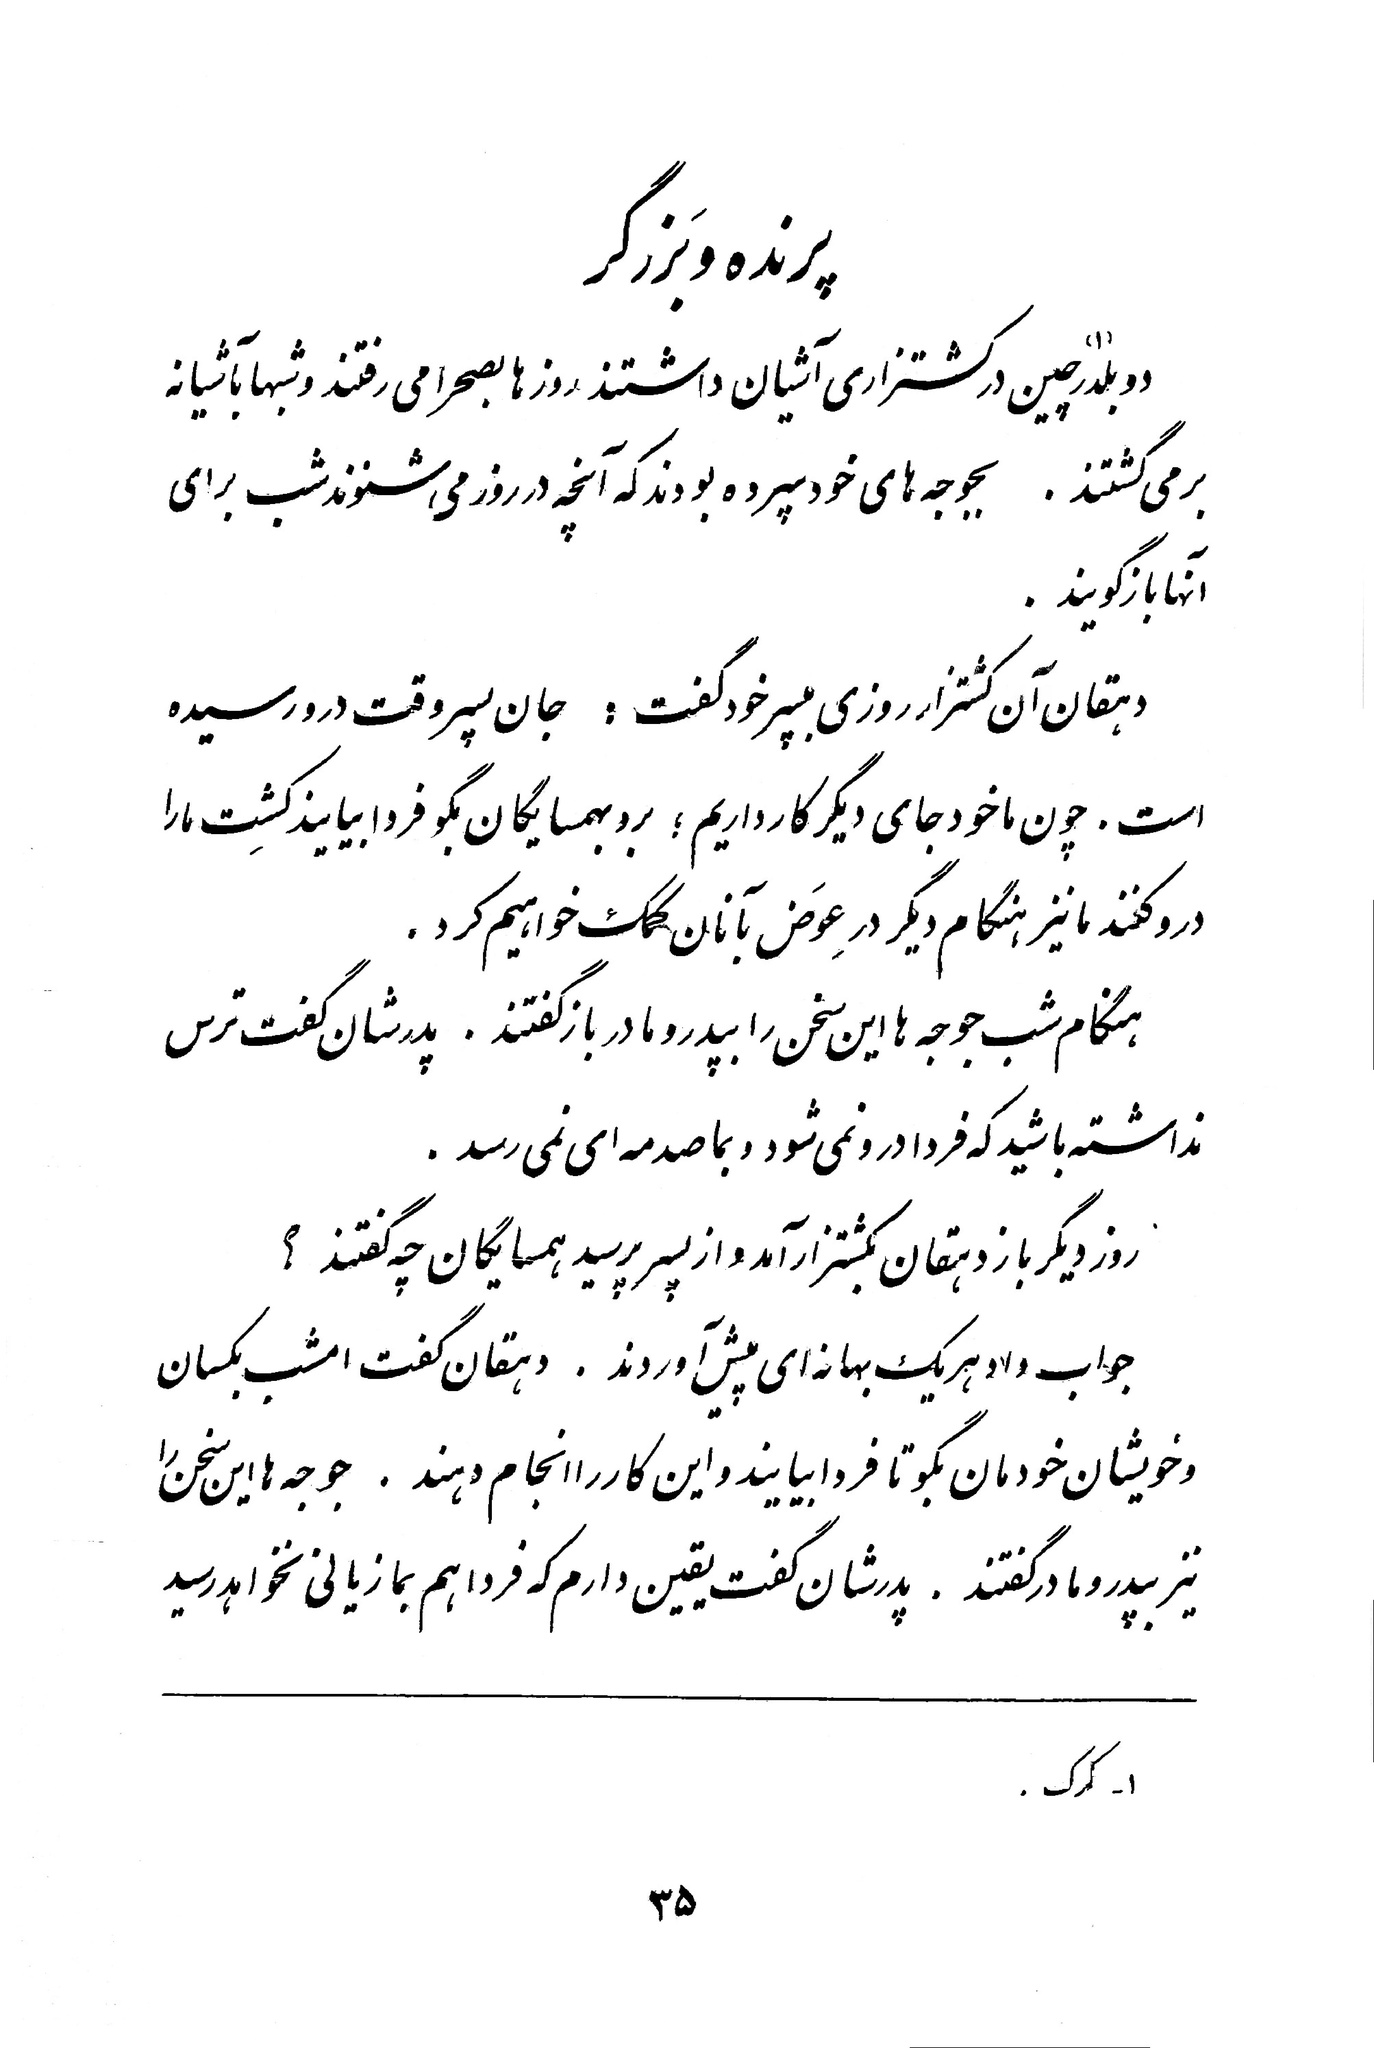 پرنده و بَزرگر
دو بلدرچین (۱) در کشتزاری آشیان داشتند روزها بصحرا می رفتند و شبها بآشیانه
بر می گشتند . بجوجه های خود سپرده بودند که آنچه در روز می شنوند شب برای
آنها باز گویند .
دهقان آن کشتزار روزی بپسر خود گفت : جان پسر وقت درو رسیده
است . چون ما خود جای دیگر کار داریم ؛ برو بهمسایگان بگو فردا بیایند کشتِ ما را
درو کنند ما نیز هنگام دیگر در عِوَض بآنان کمک خواهیم کرد .
هنگام شب جوجه ها این سخن را بپدر و مادر باز گفتند . پدرشان گفت ترس
نداشته باشید که فردا درو نمی شود و بما صدمه ای نمی رسد .
روز دیگر باز دهقان بکشتزار آمد و از پسر پرسید همسایگان چه گفتند ؟
جواب داد هر یک بهانه ای پیش آوردند . دهقان گفت امشب بکسان
و خویشان خودمان بگو تا فردا بیایند و این کار را انجام دهند . جوجه ها این سخن را
نیز بپدر و مادر گفتند . پدرشان گفت یقین دارم که فردا هم بما زیانی نخواهد رسید
۱- کرک .
۳۵